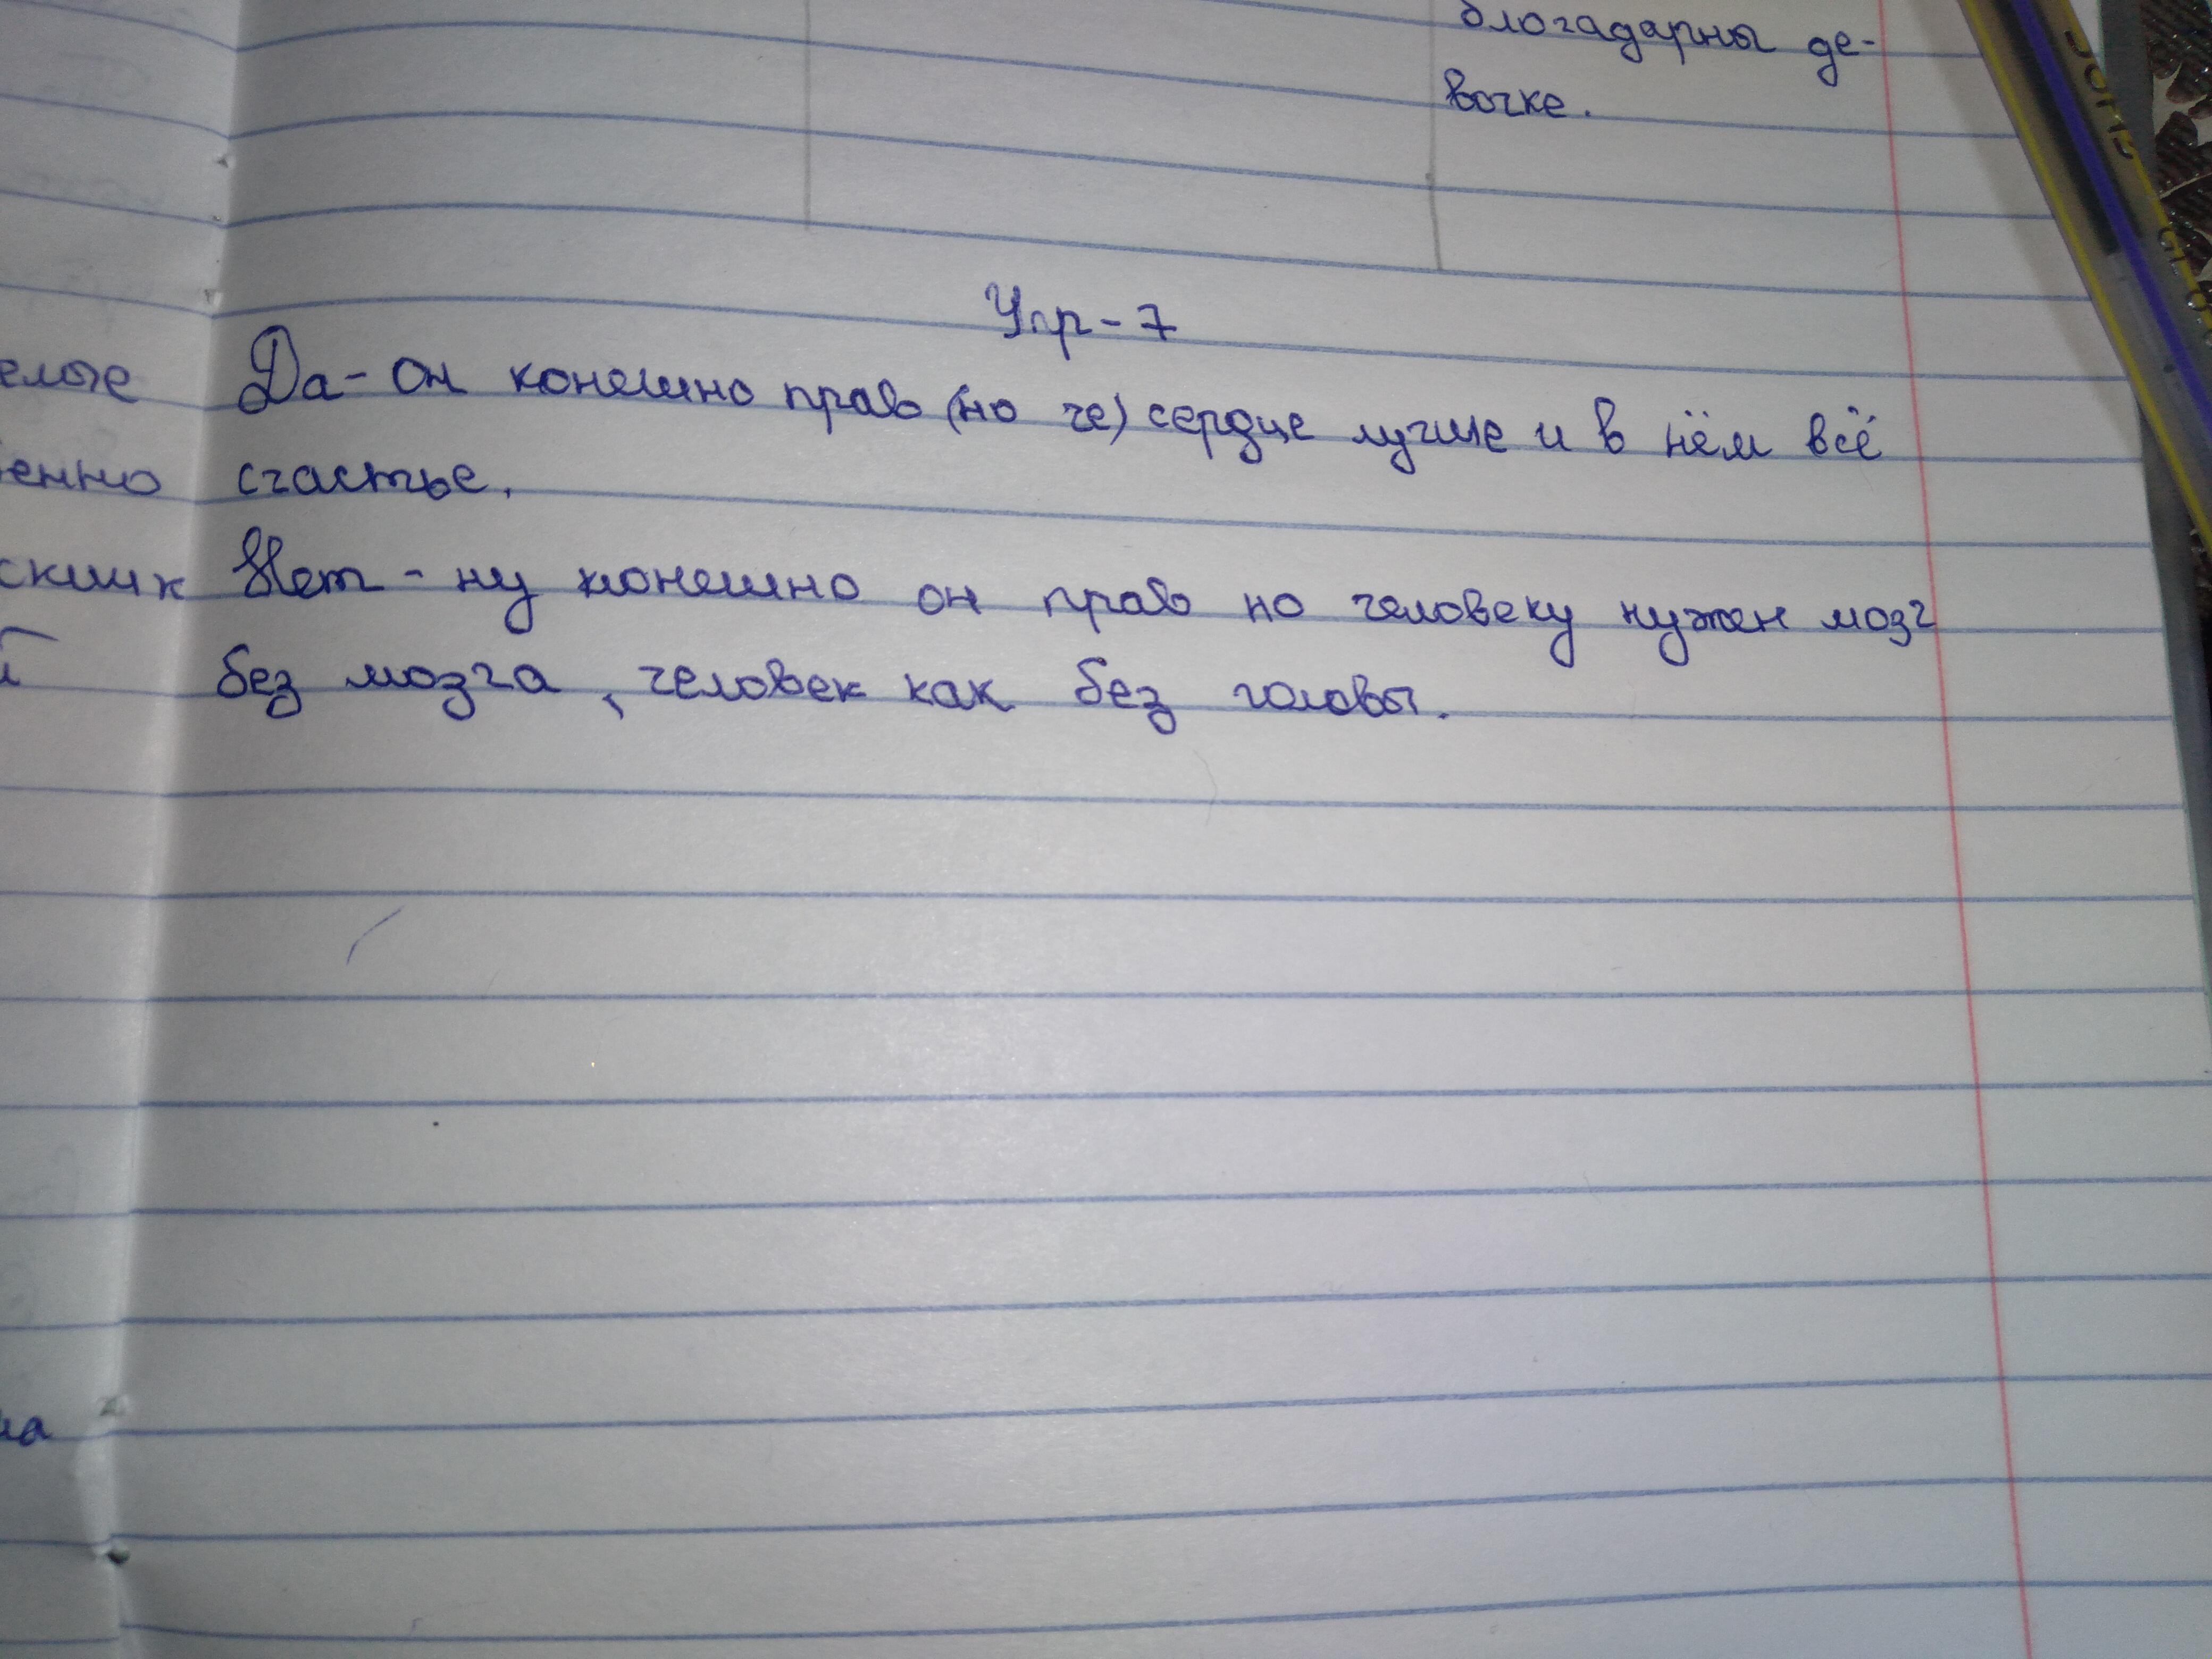 благадарны де-
вочке.
Упр-7
Да- он конешно прав (но че) сердце лучше и в нём всё
счастье.
Нет - ну конешно он прав но человеку нужен мозг
без мозга, человек как без головы.
елые
енно
ских
й
на